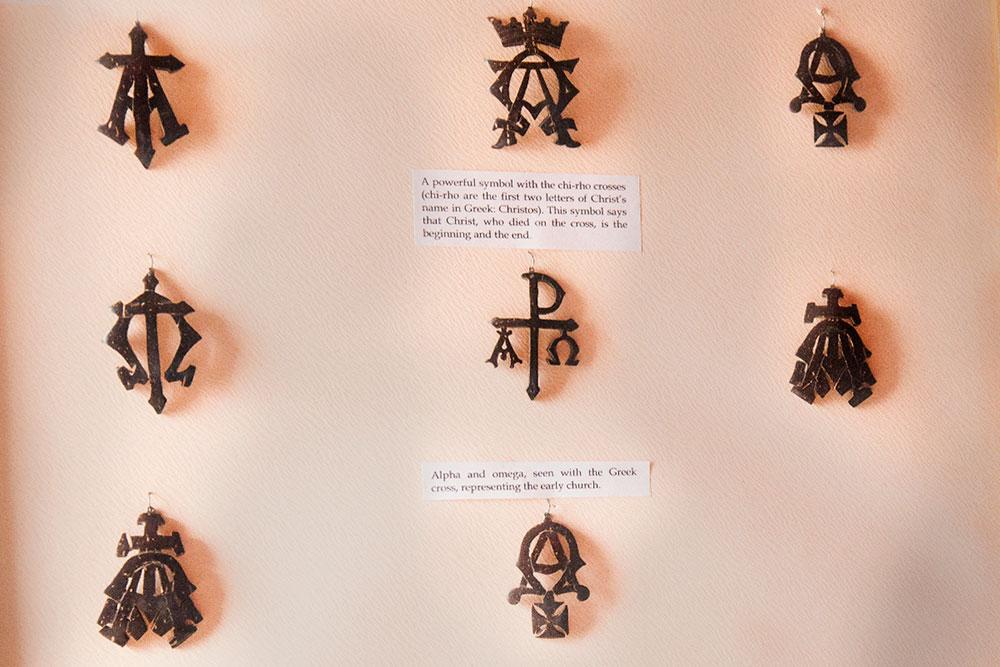 A powerful symbol with the chi-rho crosses
(chi-rho are the first two letters of Christ's
name in Greek: Christos). This symbol says
that Christ, who died on the cross, is the
beginning and the end.
Α Ω
Alpha and omega, seen with the Greek
cross, representing the early church.